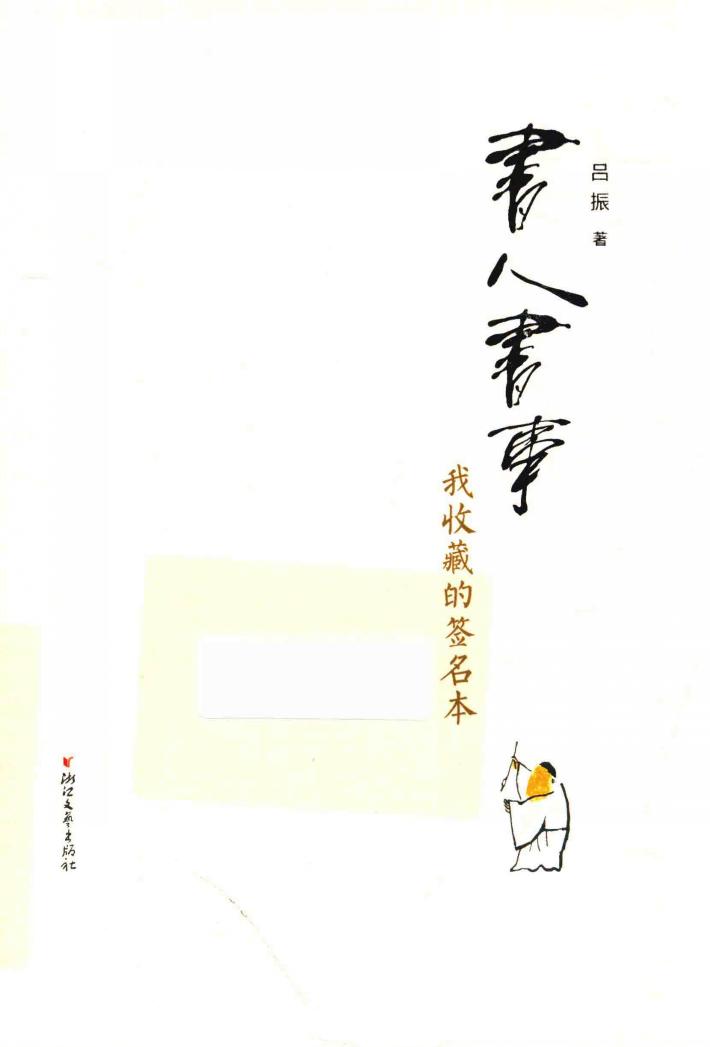 吕振 著
書人書事
我收藏的签名本
浙江文藝出版社